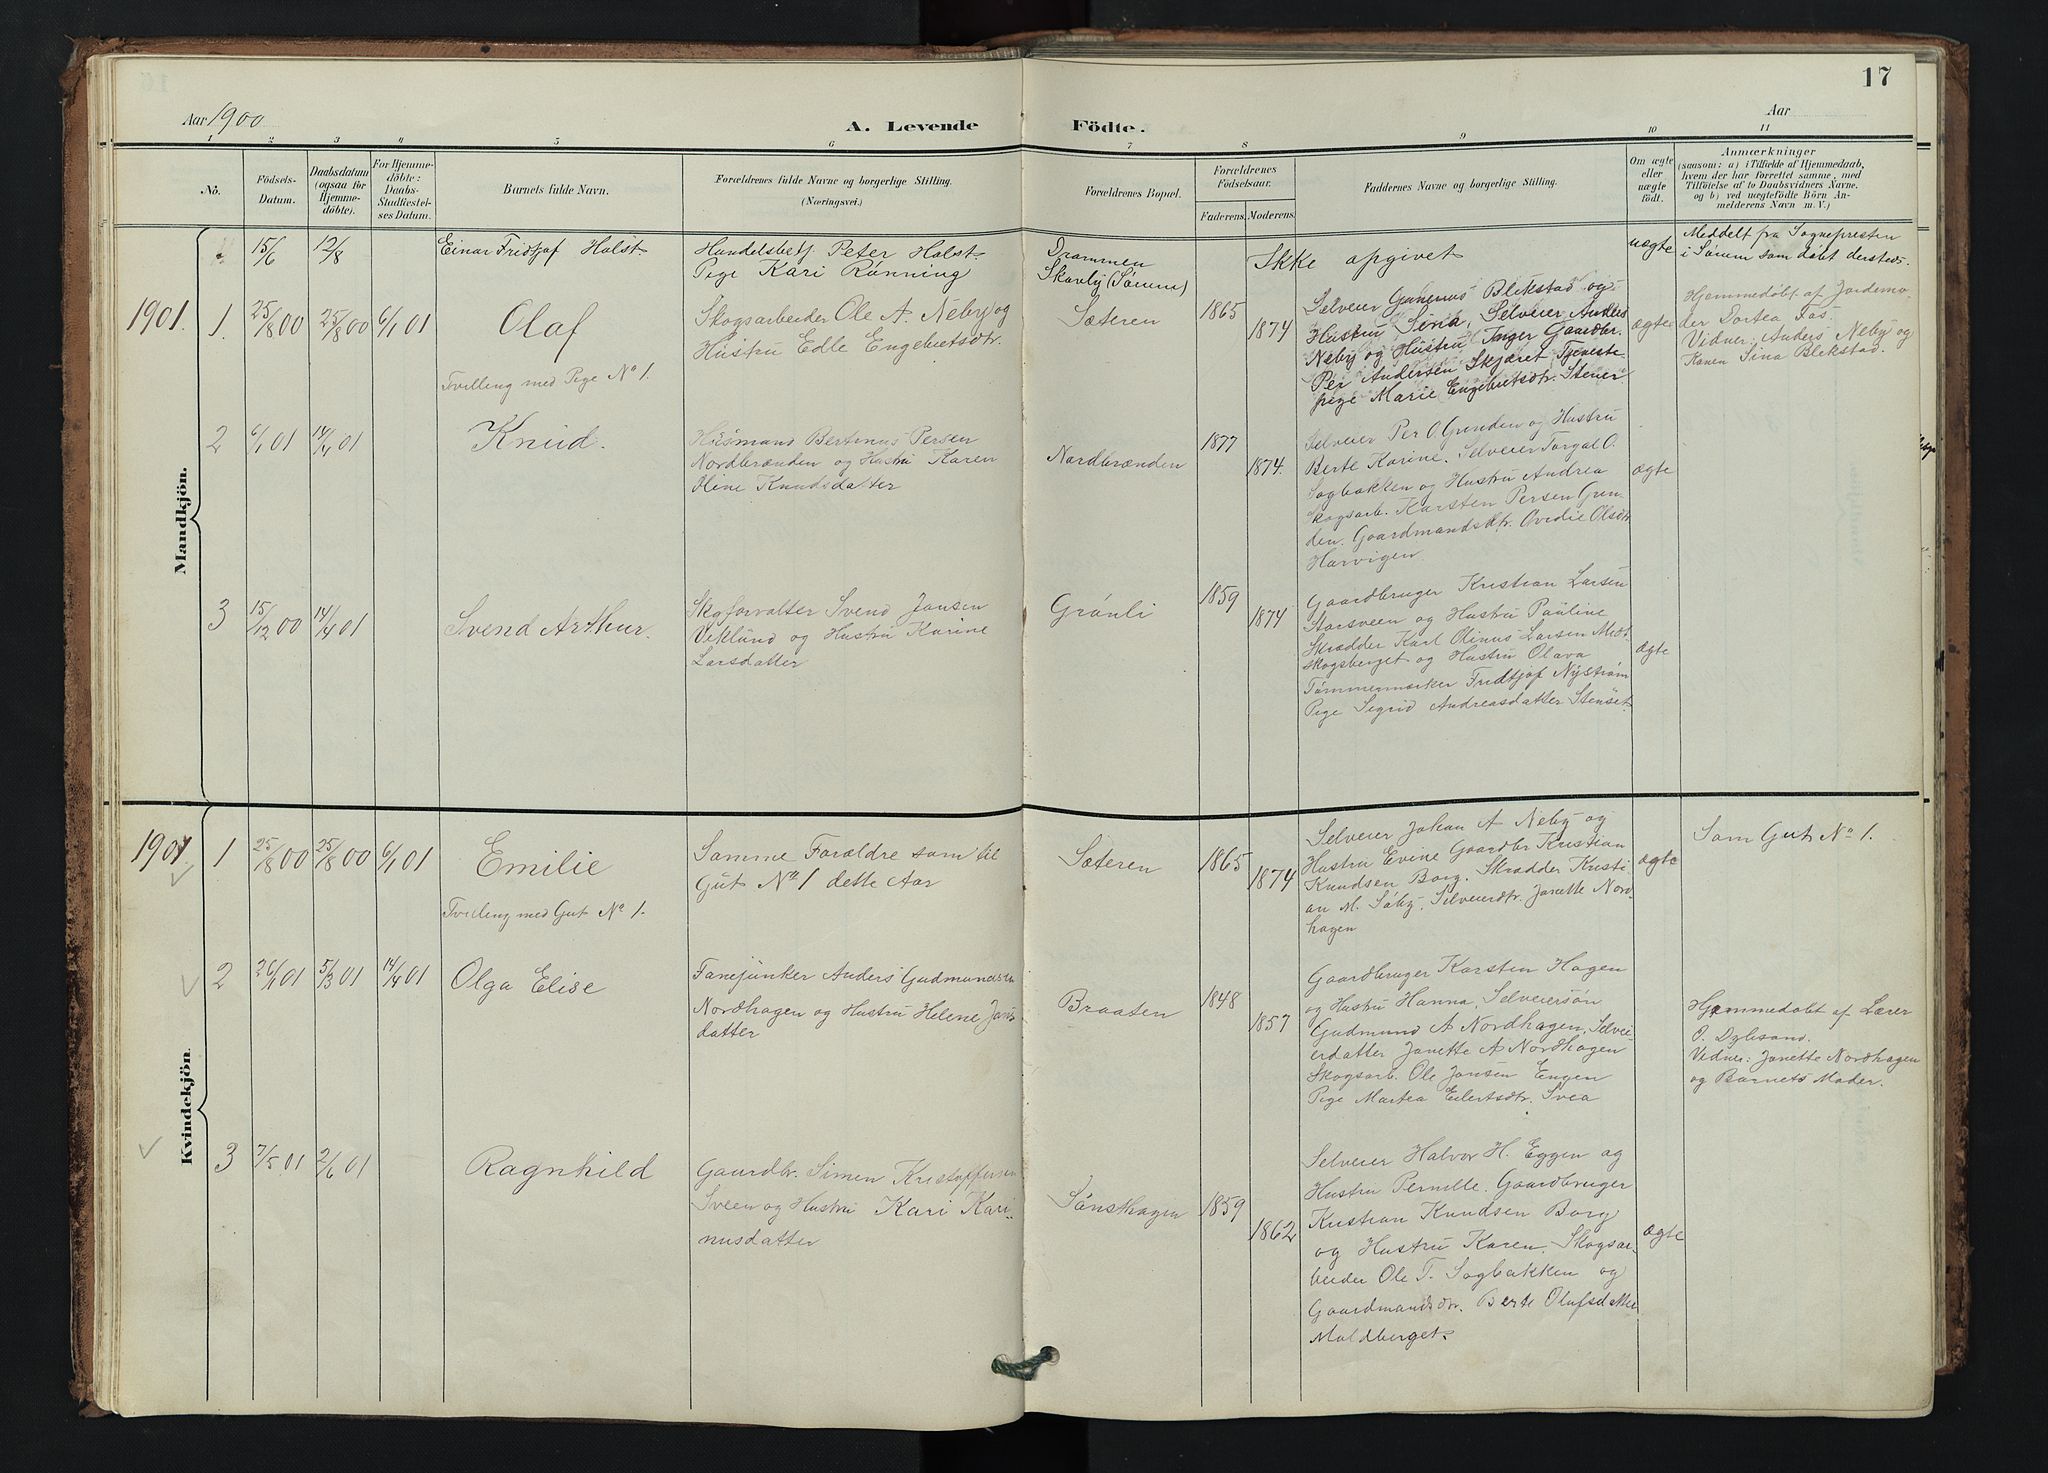 17
Aar 1900
A. Levende
Födte.
Aar
1 2 3 4 5 6 7 8 9 10 11
No.
Födsels-
Datum.
Daabsdatum
(ogsaa for
Hjemme-
döbte).
For Hjemme-
döbte:
Daabs-
Stadfæstel-
ses Datum.
Barnets fulde Navn.
Forældrenes fulde Navne og borgerlige Stilling.
(Næringsvei.)
Forældrenes Bopæl.
Forældrenes
Födselsaar.
Faderens.
Moderens.
Faddernes Navne og borgerlige Stilling.
Om ægte
eller
uægte
födt.
Anmærkninger
(saasom: a) i Tilfælde af Hjemmedaab,
hvem der har forrettet samme, med
Tilföielse af to Daabsvidners Navne.
og b) ved uægtefödte Börn An-
melderens Navn m. V.)
Mandkjön.
15/6
12/8
Einar Fridtjof Holst
Handelsbetj. Peter Holst
Pige Kari Rønning
Drammen
Skarly (Sørum)
Ikke opgivet
uægte
Meddelt fra Sognepresten
i Sørum som døbt dersteds.
1901.
1
25/8 00
25/8 00
6/1 01
Olaf
Tvilling med Pige No 1.
Skogsarbeider Ole A. Neby og
Hustru Edle Engebretsdtr.
Sæteren
1865
1874
Selveier Gunerius Blekstad og
Hustru Sina, Selveier Anders
Neby og Hustru Inger Gaardbr.
Per Andersen Skjæret, Tjeneste-
pige Marie Engebretsdtr. Stener
ægte
Hjemmedøbt af Jordemo-
der Dortea Aas.
Vidner: Anders Neby og
Konen Sina Blekstad.
2
6/1 01
14/4 01
Knud.
Husmand Bertinus Persen
Nordbrænden og Hustru Karen
Oline Knudsdatter
Nordbrænden
1877
1874.
Selveier Per O. Grenden og Hustru
Berte Karine. Selveier Torgal O.
Sogbakken og Hustru Andrea
Skogsarb. Karsten Persen Gren-
den. Gaardmandsdtr. Ovedie Olsdtr
Harvigen
ægte
3
15/12 00
14/4 01
Svend Arthur.
Skogforvalter Svend Jansen
Viklund og Hustru Karine
Larsdatter
Grønli
1859
1874
Gaardbruger Kristian Larsen
Storsveen og Hustru Pauline
Skrædder Karl Olinus Larsen Midt-
skogsberget og Hustru Olava
Tømmermærker Fridtjof Nystrøm
Pige Sigrid Andreasdatter Stenset.
ægte
Kvindekjön.
1901
1
25/8 00
25/8 00
6/1 01
Emilie
Tvilling med Gut No 1.
Samme Forældre som til
Gut No 1 dette Aar
Sæteren
1865
1874
Selveier Johan A Neby og
Hustru Evine Gaardbr Kristian
Knudsen Borg. Skrædder Kristi-
an M. Søby, Selveierdtr. Janette Nord-
hagen
ægte
Som Gut No 1.
2
26/1 01
5/3 01
14/4 01
Olga Elise
Fanejunker Anders Gudmundsen
Nordhagen og Hustru Helene Jans-
datter
Braaten
1848
1857
Gaardbruger Karsten Hagen
og Hustru Hanna, Selveiersøn
Gudmund A Nordhagen, Selvei-
erdatter Janette A Nordhagen
Skogsarb. Ole Jansen Engen
Pige Martea Eilertsdtr. Svea
Hjemmedøbt af Lærer
O. Dybsand.
Vidner: Janette Nordhagen
og Barnets Moder.
3
7/5 01
2/6 01
Ragnhild
Gaardbr. Simen Kristoffersen
Sveen og Hustru Kari Kari-
nusdatter
Sønsthagen
1859
1862
Selveier Halvor H. Eggen og
Hustru Pernille. Gaardbruger
Kristian Knudsen Borg
og Hustru Karen. Skogsar-
beider Ole T. Sogbakken og
Gaardmandsdtr. Berte Olufsdatter
Moldberget.
ægte